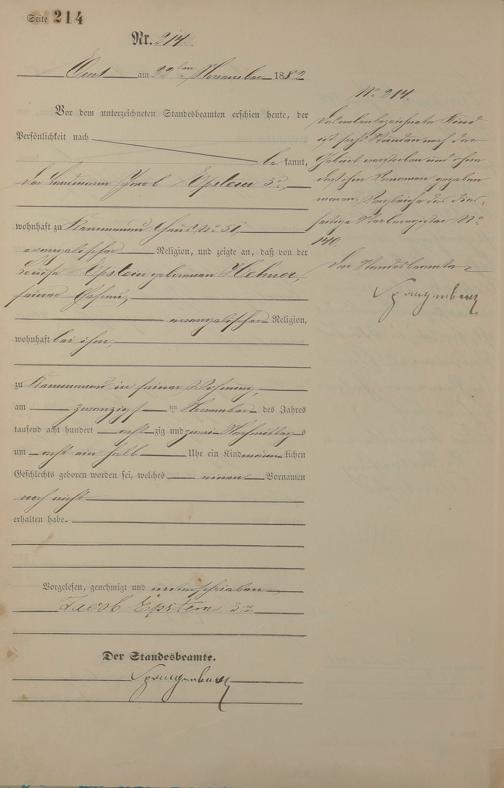 Seite 214
Nr. 214
am 22ten November 1882
Vor dem unterzeichneten Standesbeamten erschien heute, der
Persönlichkeit nach
be kannt,
der Landmann Jacob Epstein 3r,
wohnhaft zu
evangelischer Religion, und zeigte an, daß von der
Epstein geborenen Hehner,
seiner Ehefrau,
evangelischer Religion,
wohnhaft bei ihm,
zu in seiner Wohnung,
am zwanzigsten November des Jahres
tausend acht hundert achtzig und zwei Nachmittags
um acht ein halb Uhr ein Kind männlichen
Geschlechts geboren worden sei, welches einen Vornamen
noch nicht
erhalten habe.
Vorgelesen, genehmigt und unterschrieben
Jacob Epstein 3r
Der Standesbeamte.
No 214.
Das nebenbezeichnete Kind
ist sechs Stunden nach der
Geburt verstorben und ohne
Vornamen
No
140.
Der Standesbeamte